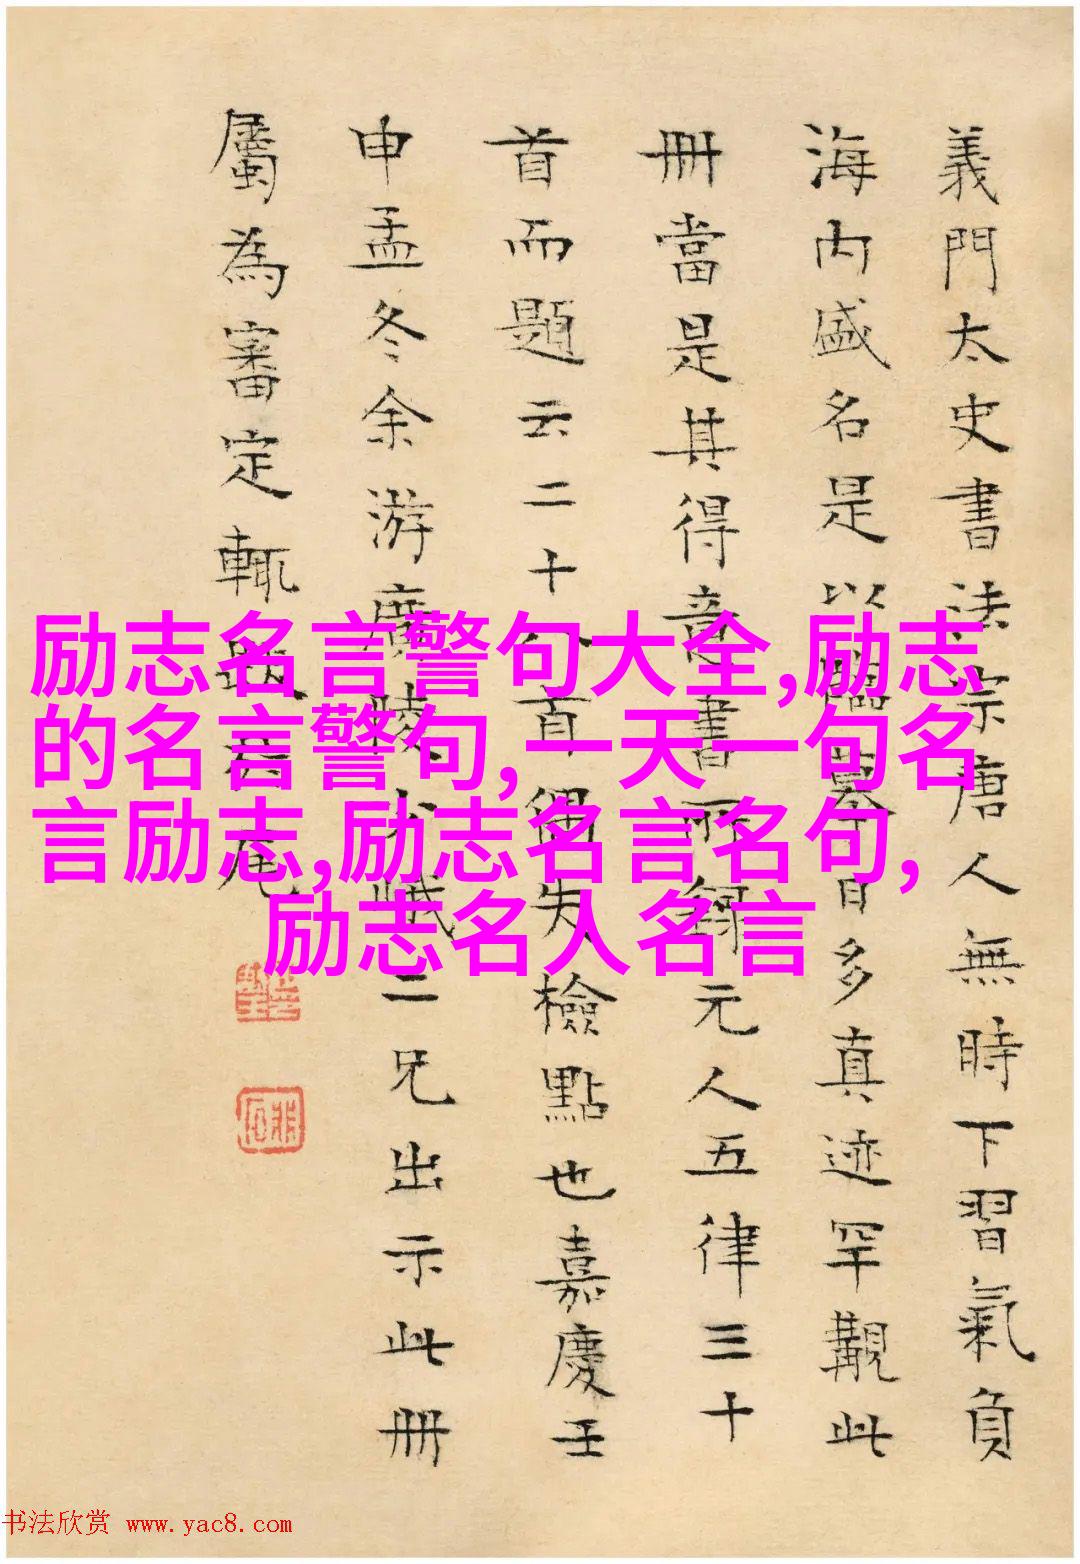 義門太史書法宗唐人無時下習氣負
海内盛名是以臨摹日多真迹罕觏此
冊當是其得意書所録元人五律三十
首而題云二十八首偶失檢點也嘉慶壬
申孟冬余游廣陵小峨二兄出示此冊
屬為審定輒跋於尾
励志名言警句大全,励志
的名言警句,一天一句名
言励志,励志名言名句,
励志名人名言
书法欣赏 www.yac8.com